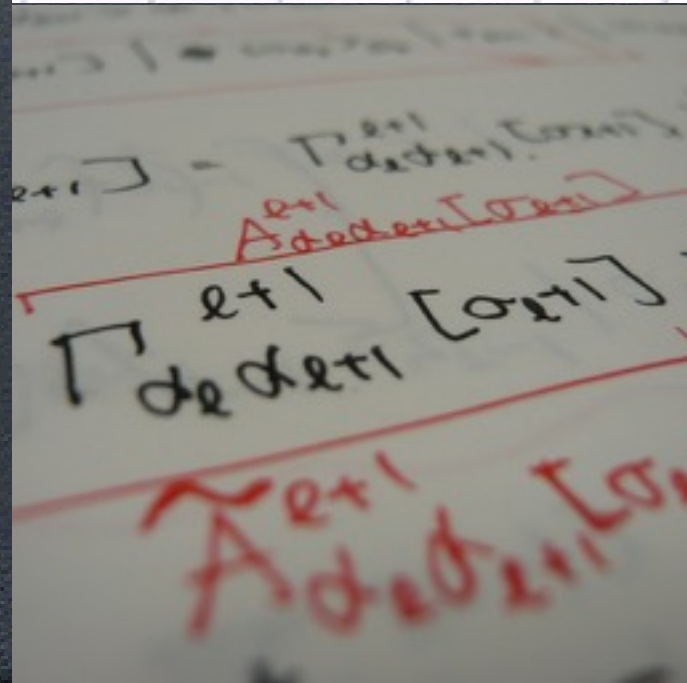 ℓ+1] = Γ^{ℓ+1}_{α_ℓ α_{ℓ+1}} [σ_{ℓ+1}]
A^{ℓ+1}_{α_ℓ α_{ℓ+1}} [σ_{ℓ+1}]
Γ^{ℓ+1}_{α_ℓ α_{ℓ+1}} [σ_{ℓ+1}]
Ã^{ℓ+1}_{α_ℓ α_{ℓ+1}} [σ